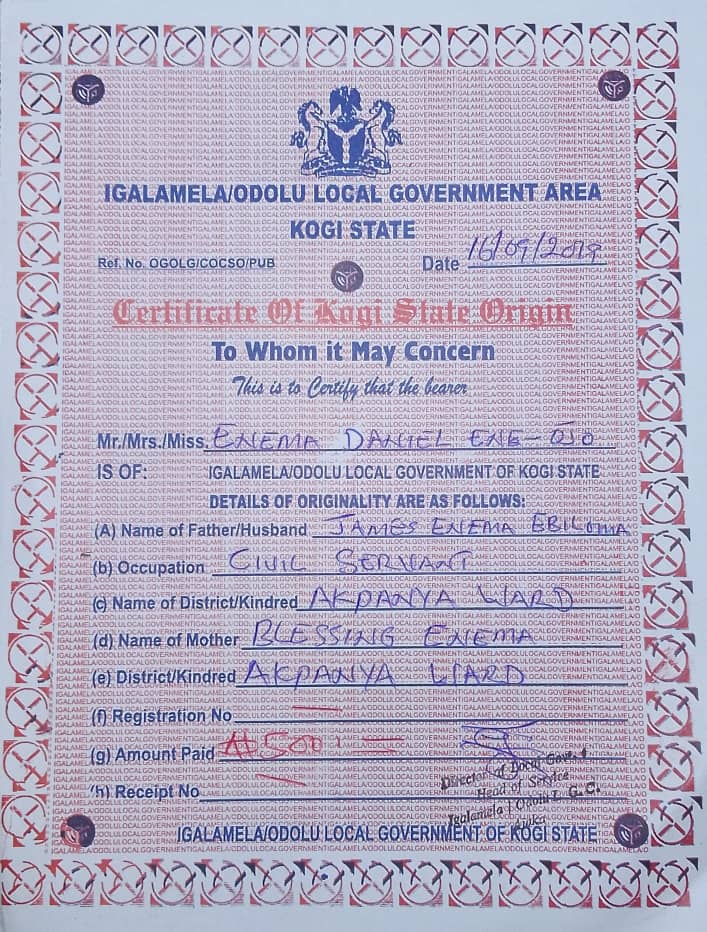 IGALAMELA/ODOLU LOCAL GOVERNMENT AREA
KOGI STATE
Ref. No. OGOLG/COCSO/PUB
Date 16/09/2019
Certificate Of Kogi State Origin
To Whom it May Concern
This is to Certify that the bearer
Mr./Mrs./Miss. ENEMA DANIEL ENE-OJO
IS OF: IGALAMELA/ODOLU LOCAL GOVERNMENT OF KOGI STATE
DETAILS OF ORIGINALITY ARE AS FOLLOWS:
(A) Name of Father/Husband JAMES ENEMA EBILOMA
(b) Occupation CIVIL SERVANT
(c) Name of District/Kindred AKPANYA WARD
(d) Name of Mother BLESSING ENEMA
(e) District/Kindred AKPANYA WARD
(f) Registration No
(g) Amount Paid ₦500
(h) Receipt No
Director of Local Govt.
Head of Service
Igalamela / Odolu L. G. C.
IGALAMELA/ODOLU LOCAL GOVERNMENT OF KOGI STATE